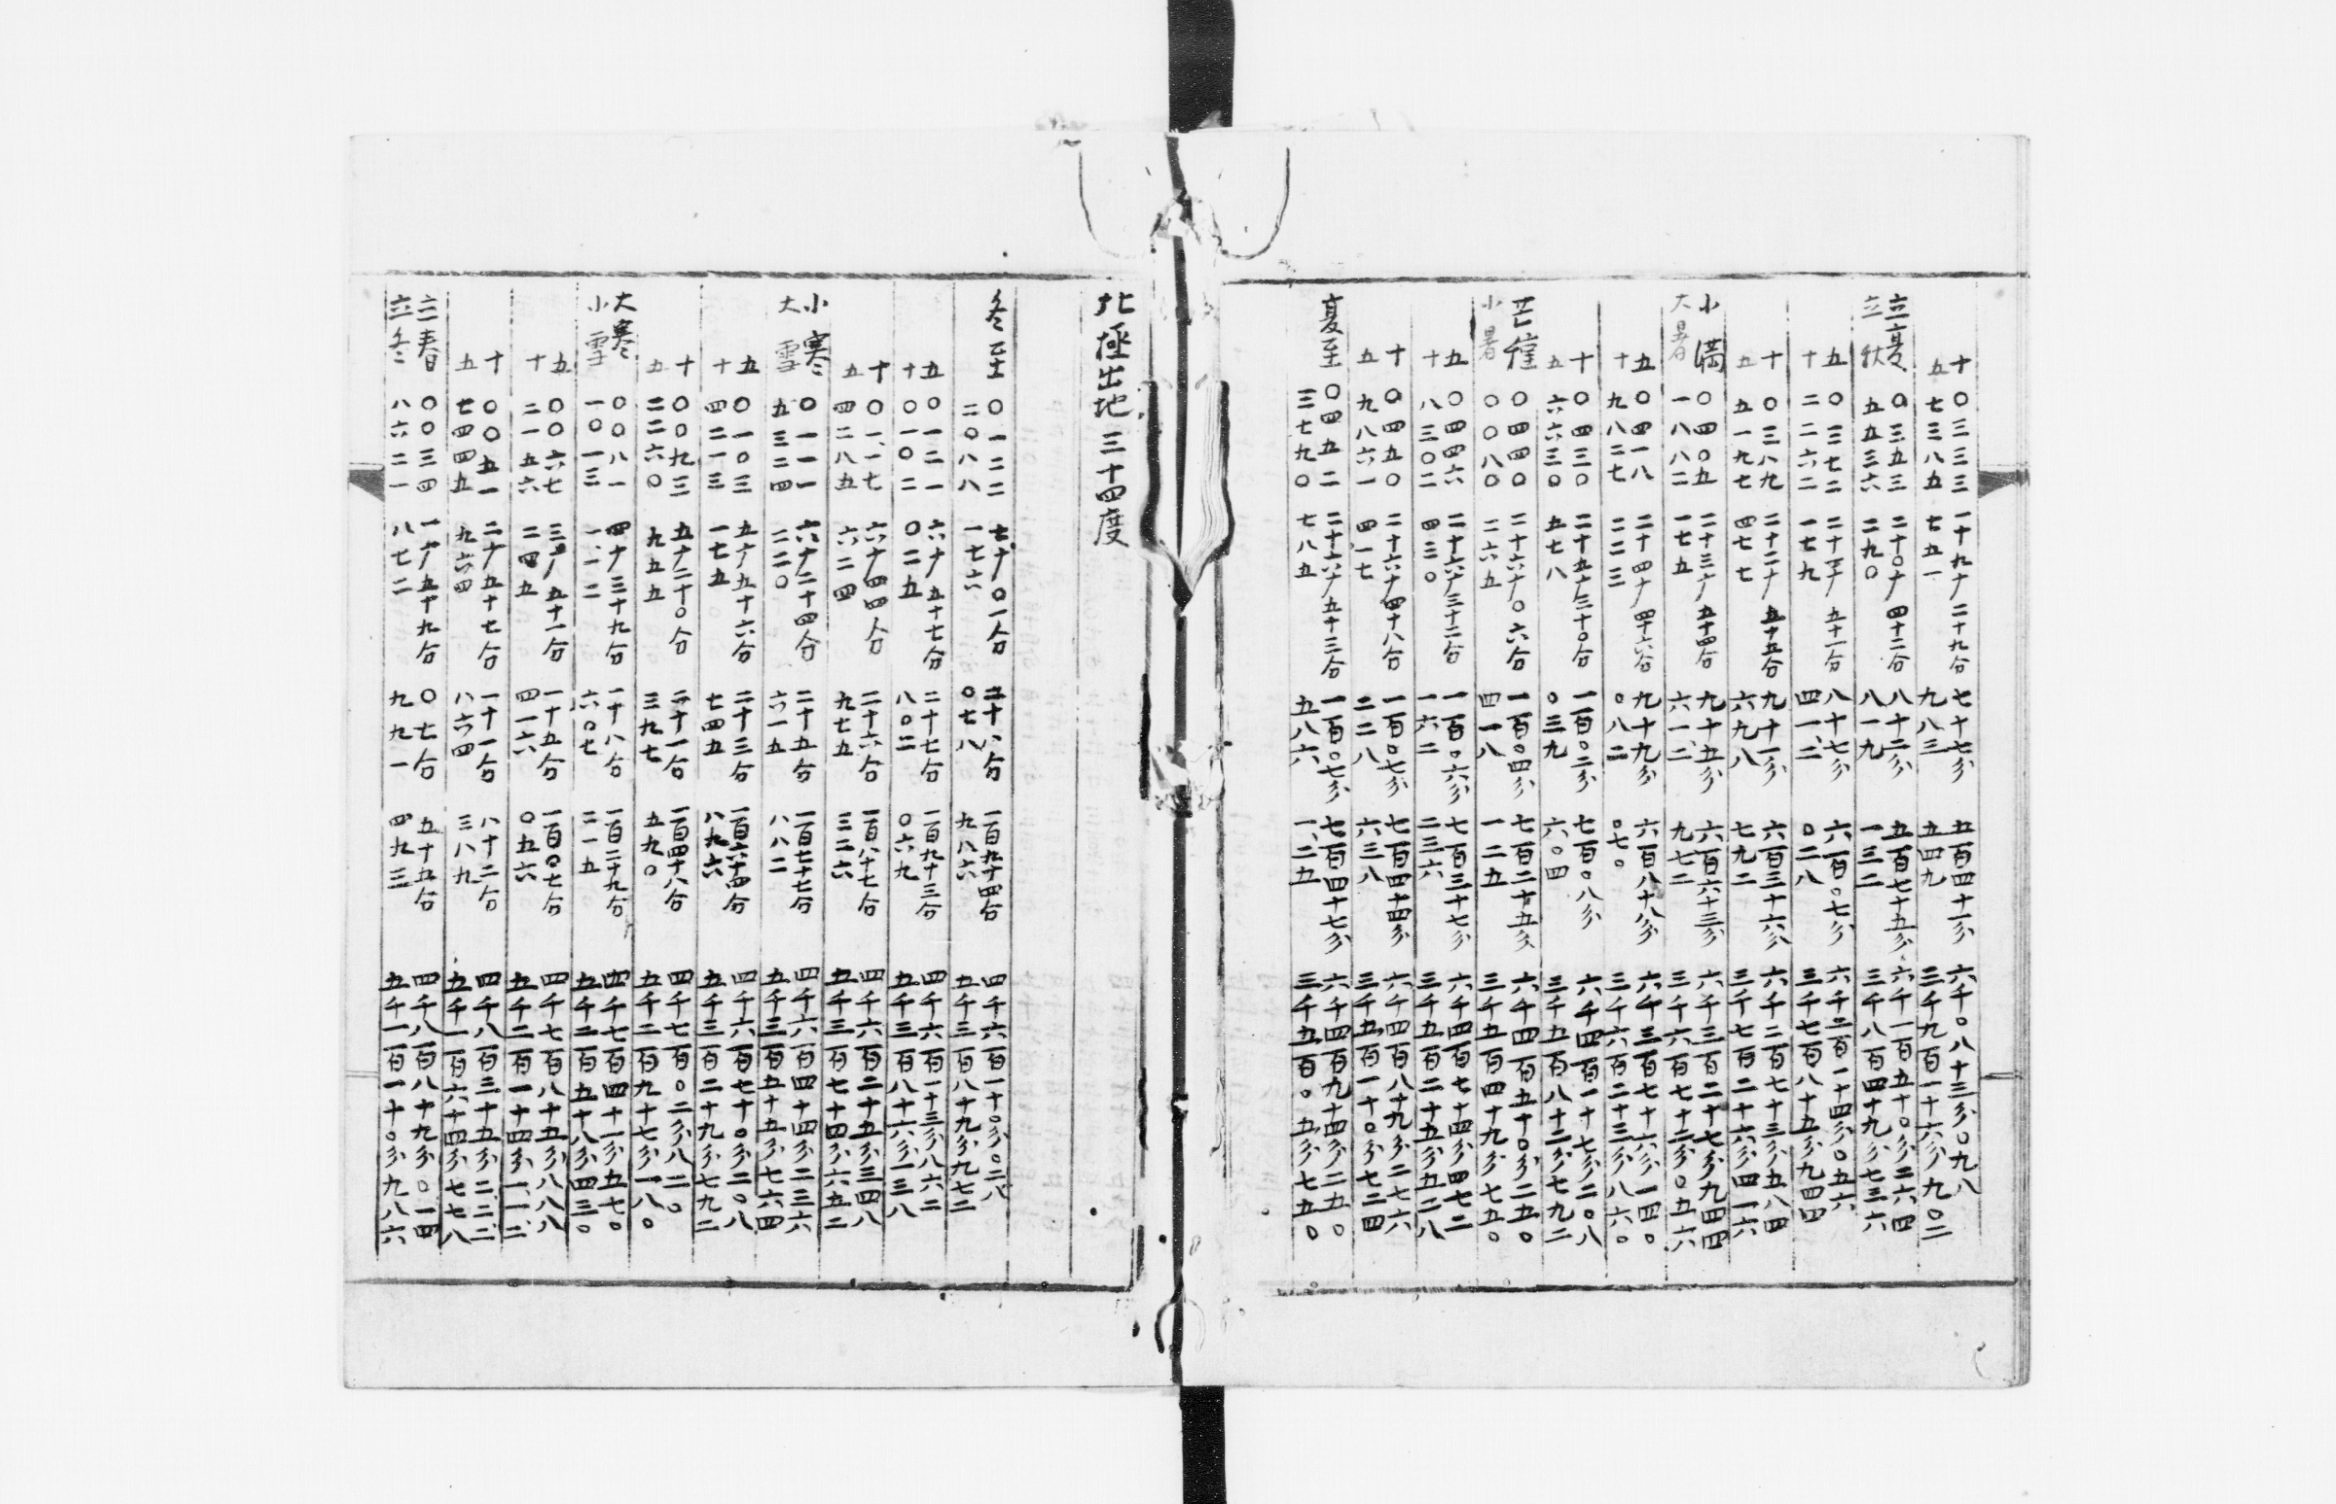 十 〇三三三 一十九ナ二十九分 七十七分 五百四十一分 六千〇八十三分〇九八
五 七三八五 七五一 九八三 五四九 三千九百一十六分九〇二
立夏 〇三五三 二十〇ナ四十二分 八十二分 五百七十五分 六千一百五十〇分二六四
立秋 五五三六 二九〇 八一九 一三二 三千八百四十九分七三六
五 〇三七二 二十一ナ五十一分 八十七分 六百〇七分 六千二百一十四分〇五六
十 二二六二 一七九 四一二 〇二八 三千七百八十五分九四四
十 〇三八九 二十二ナ五十五分 九十一分 六百三十六分 六千二百七十三分五八四
五 五一九七 四七七 六九八 七九二 三千七百二十六分四一六
小満 〇四〇五 二十三ナ五十四分 九十五分 六百六十三分 六千三百二十七分九四四
大暑 一八八二 一七五 六一二 九七二 三千六百七十二分〇五六
五 〇四一八 二十四ナ四十六分 九十九分 六百八十八分 六千三百七十六分一四〇
十 九八二七 二二三 〇八二 〇七〇 三千六百二十三分八六〇
十 〇四三〇 二十五ナ三十〇分 一百〇二分 七百〇八分 六千四百一十七分二〇八
五 六六三〇 五七八 〇三九 六〇四 三千五百八十二分七九二
芒種 〇四四〇 二十六ナ〇六分 一百〇四分 七百二十五分 六千四百五十〇分二五〇
小暑 〇〇八〇 二六五 四一八 一二五 三千五百四十九分七五〇
五 〇四四六 二十六ナ三十二分 一百〇六分 七百三十七分 六千四百七十四分四七二
十 八三〇二 四三〇 一六二 二三六 三千五百二十五分五二八
十 〇四五〇 二十六ナ四十八分 一百〇七分 七百四十四分 六千四百八十九分二七六
五 九八六一 四一七 二二八 六三八 三千五百一十〇分七二四
夏至 〇四五二 二十六ナ五十三分 一百〇七分 七百四十七分 六千四百九十四分二五〇
三七九〇 七八五 五八六 一二五 三千五百〇五分七五〇
北極出地三十四度
冬至 〇一二二 七ナ〇一分 二十八分 一百九十四分 四千六百一十〇分〇二八
二〇八八 一七六 〇七八 九八六 五千三百八十九分九七二
五 〇一二一 六ナ五十七分 二十七分 一百九十三分 四千六百一十三分八六二
十 〇一〇二 〇二五 八〇二 〇六九 五千三百八十六分一三八
十 〇一一七 六ナ四四分 二十六分 一百八十七分 四千六百二十五分三四八
五 四二八五 六二四 九七五 三二六 五千三百七十四分六五二
小寒 〇一一一 六ナ二十四分 二十五分 一百七十七分 四千六百四十四分二三六
大雪 五三二四 二二〇 六一五 八八二 五千三百五十五分七六四
五 〇一〇三 五ナ九十六分 二十三分 一百六十四分 四千六百七十〇分二〇八
十 四二一三 一七五 七四五 八九六 五千三百二十九分七九二
十 〇〇九三 五ナ二十〇分 二十一分 一百四十八分 四千七百〇二分八二〇
五 二二六〇 九五五 三九七 五九〇 五千二百九十七分一八〇
大寒 〇〇八一 四ナ三十九分 一十八分 一百二十九分 四千七百四十一分五七〇
小雪 一〇一三 一一二 六〇七 二一五 五千二百五十八分四三〇
五 〇〇六七 三ナ五十一分 一十五分 一百〇七分 四千七百八十五分八八八
十 二一五六 二四五 四一六 〇五六 五千二百一十四分一一二
十 〇〇五一 二ナ五十七分 一十一分 八十二分 四千八百三十五分二二二
五 七四四五 九六四 八六四 三八九 五千一百六十四分七七八
立春 〇〇三四 一ナ五十九分 〇七分 五十五分 四千八百八十九分〇一四
立冬 八六二一 八七二 九九一 四九三 五千一百一十〇分九八六